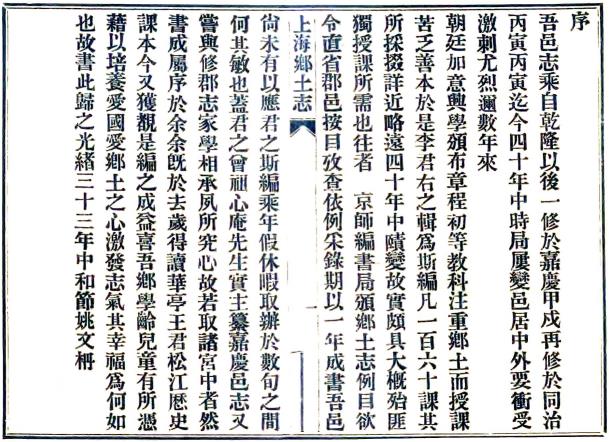 序
吾邑志乘自乾隆以後一修於嘉慶甲戌再修於同治
丙寅丙寅迄今四十年中時局屢變邑居中外要衝受
激刺尤烈邇數年來
朝廷加意興學頒布章程初等教科注重鄉土而授課
苦乏善本於是李君右之輯爲斯編凡一百六十課其
所採掇詳近略遠四十年中蹟變故實頗具大槪殆匪
獨授課所需也往者　京師編書局頒鄉土志例目欲
令直省郡邑按目攷查依例采錄期以一年成書吾邑
上海鄉土志
尙未有以應君之斯編乘年假休暇取辦於數旬之間
何其敏也蓋君之曾祖心庵先生實主纂嘉慶邑志又
嘗與修郡志家學相承夙所究心故若取諸宮中者然
書成屬序於余余旣於去歲得讀華亭王君松江歷史
課本今又獲觀是編之成益喜吾鄉學齡兒童有所憑
藉以培養愛國愛鄉土之心激發志氣其幸福爲何如
也故書此歸之光緒三十三年中和節姚文枬